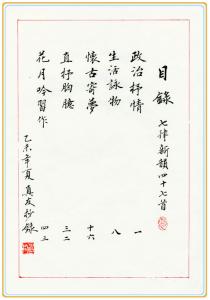 目錄
七律新韻四十七首
政治抒情 一
生活詠物 八
懷古寄夢 十六
直抒胸臆 三二
花月吟習作 四三
乙未年夏真友抄錄